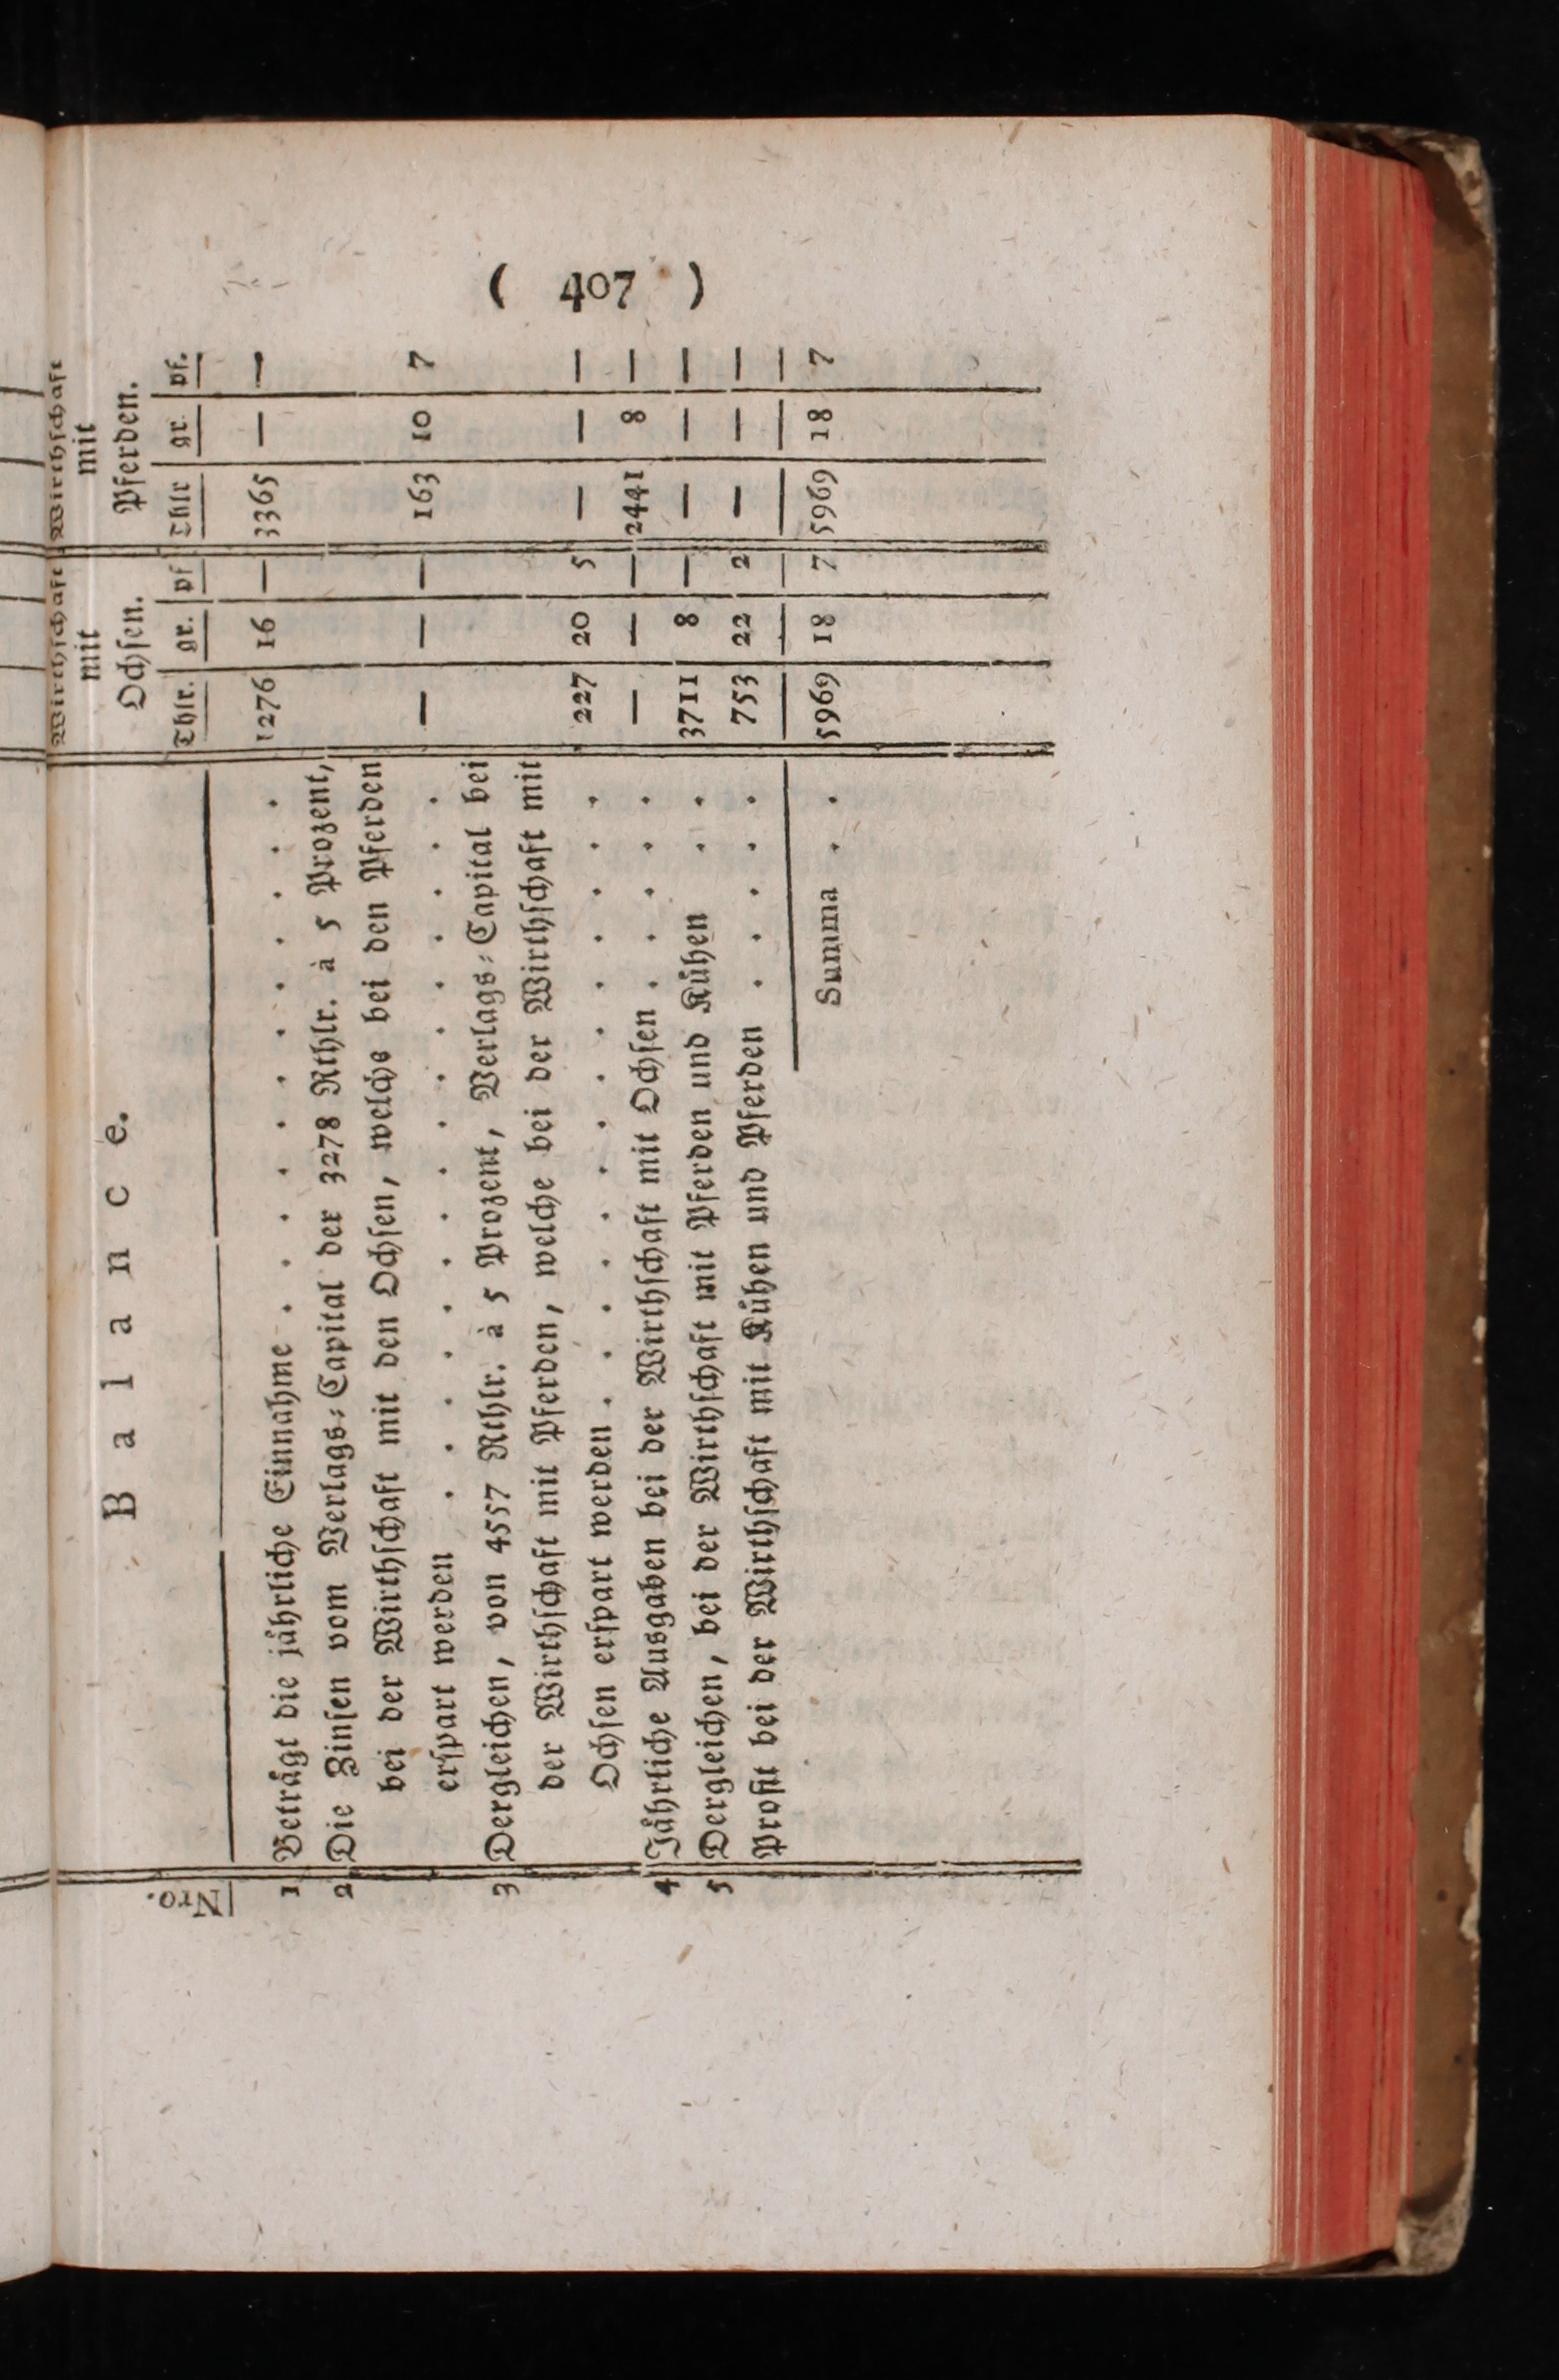 ( 407 )
Balance.
Wirthschaft mit Ochsen. Wirthschaft mit Pferden.
Nro. Thlr. gr. pf Thlr gr. pf.
1 Beträgt die jährliche Einnahme . . . . . . . . . . . . 1276 16 — 3365 — —
2 Die Zinsen vom Verlags-Capital der 3278 Rthlr. à 5 Prozent,
bei der Wirthschaft mit den Ochsen, welche bei den Pferden
erspart werden . . . . . . . . . . . . . . . . — — — 163 10 7
3 Dergleichen, von 4557 Rthlr. à 5 Prozent, Verlags-Capital bei
der Wirthschaft mit Pferden, welche bei der Wirthschaft mit
Ochsen erspart werden . . . . . . . . . . . . . . 227 20 5 — — —
4 Jährliche Ausgaben bei der Wirthschaft mit Ochsen . . . . . — — — 2441 8 —
5 Dergleichen, bei der Wirthschaft mit Pferden und Kühen . . 3711 8 — — — —
Profit bei der Wirthschaft mit Kühen und Pferden . . . . . 753 22 2 — — —
Summa . . 5969 18 7 5969 18 7